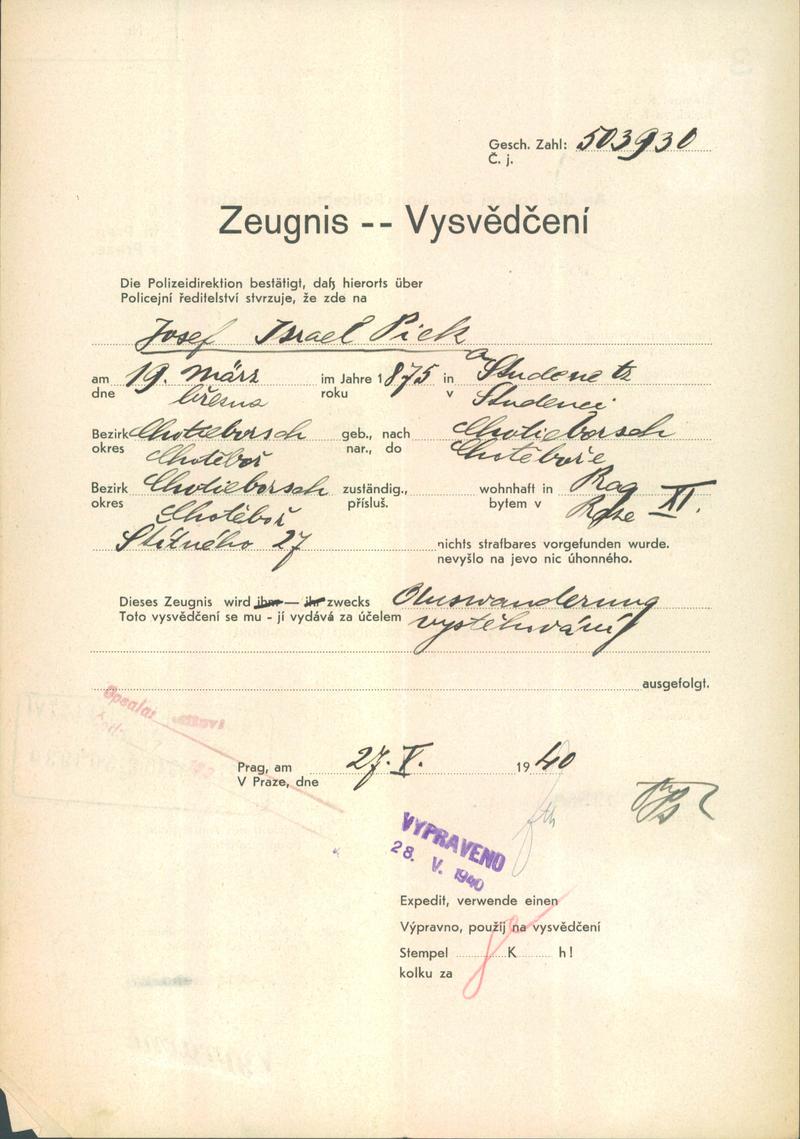 Gesch. Zahl: 503930
Č. j.
Zeugnis -- Vysvědčení
Die Polizeidirektion bestätigt, daß hierorts über
Policejní ředitelství stvrzuje, že zde na
Josef Israel Pick
am 19. März im Jahre 1875 in Studenetz
dne března roku v Studenci
Bezirk Chotieborsch geb., nach Chotieborsch
okres Chotěboř nar., do Chotěboře
Bezirk Chotieborsch zuständig., wohnhaft in Prag XI.
okres Chotěboř přísluš. bytem v Praze
Štítného 27 nichts strafbares vorgefunden wurde.
nevyšlo na jevo nic úhonného.
Dieses Zeugnis wird ihm — ihr zwecks Auswanderung
Toto vysvědčení se mu - jí vydává za účelem vystěhování
ausgefolgt.
Prag, am 27. V. 1940
V Praze, dne
VYPRAVENO
28. V. 1940
Expedit, verwende einen
Výpravno, použij na vysvědčení
Stempel K h!
kolku za